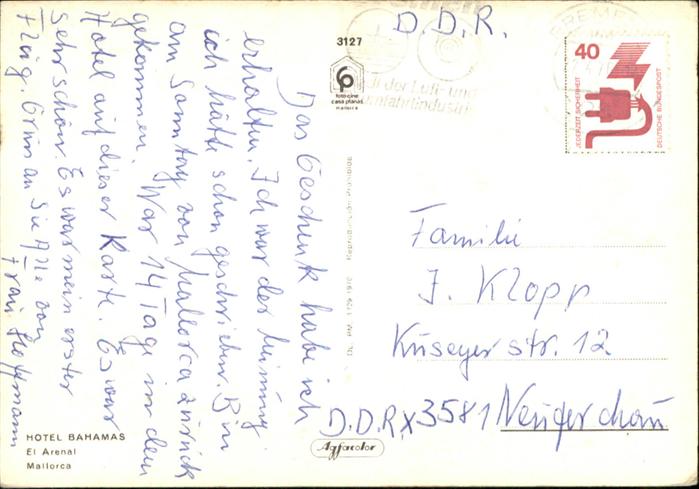 Das Geschenk habe ich
erhalten. Ich war der Meinung
ich hätte schon geschrieben. Bin
am Samstag von Mallorca zurück
gekommen. War 14 Tage in dem
Hotel auf dieser Karte. Es war
sehr schön. Es war mein erster
Flug. Grüße an Sie Alle von
Frau Hoffmann
HOTEL BAHAMAS
El Arenal
Mallorca
3127
foto-cine
casa planas
mallorca
Reproducción Prohibida
Agfacolor
D.D.R.
BREMEN
der Luft- und
Raumfahrtindustrie
40
JEDERZEIT SICHERHEIT
DEUTSCHE BUNDESPOST
Familie
J. Klopp
Küseyer str. 12
D.D.R. X 3581 Neuferchau